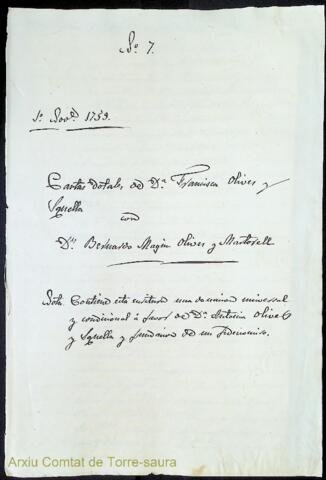 No. 7.
1o. Novre. 1759.
Cartas dotales de Da. Francisca Olives y
Squella
con
Dn. Bernardo Magin Olives y Martorell
Nota Contiene esta escritura una donacion universal
y condicional á favor de Da. Antonia Olives
y Squella y fundacion de un fideicomiso.
Arxiu Comtat de Torre-saura